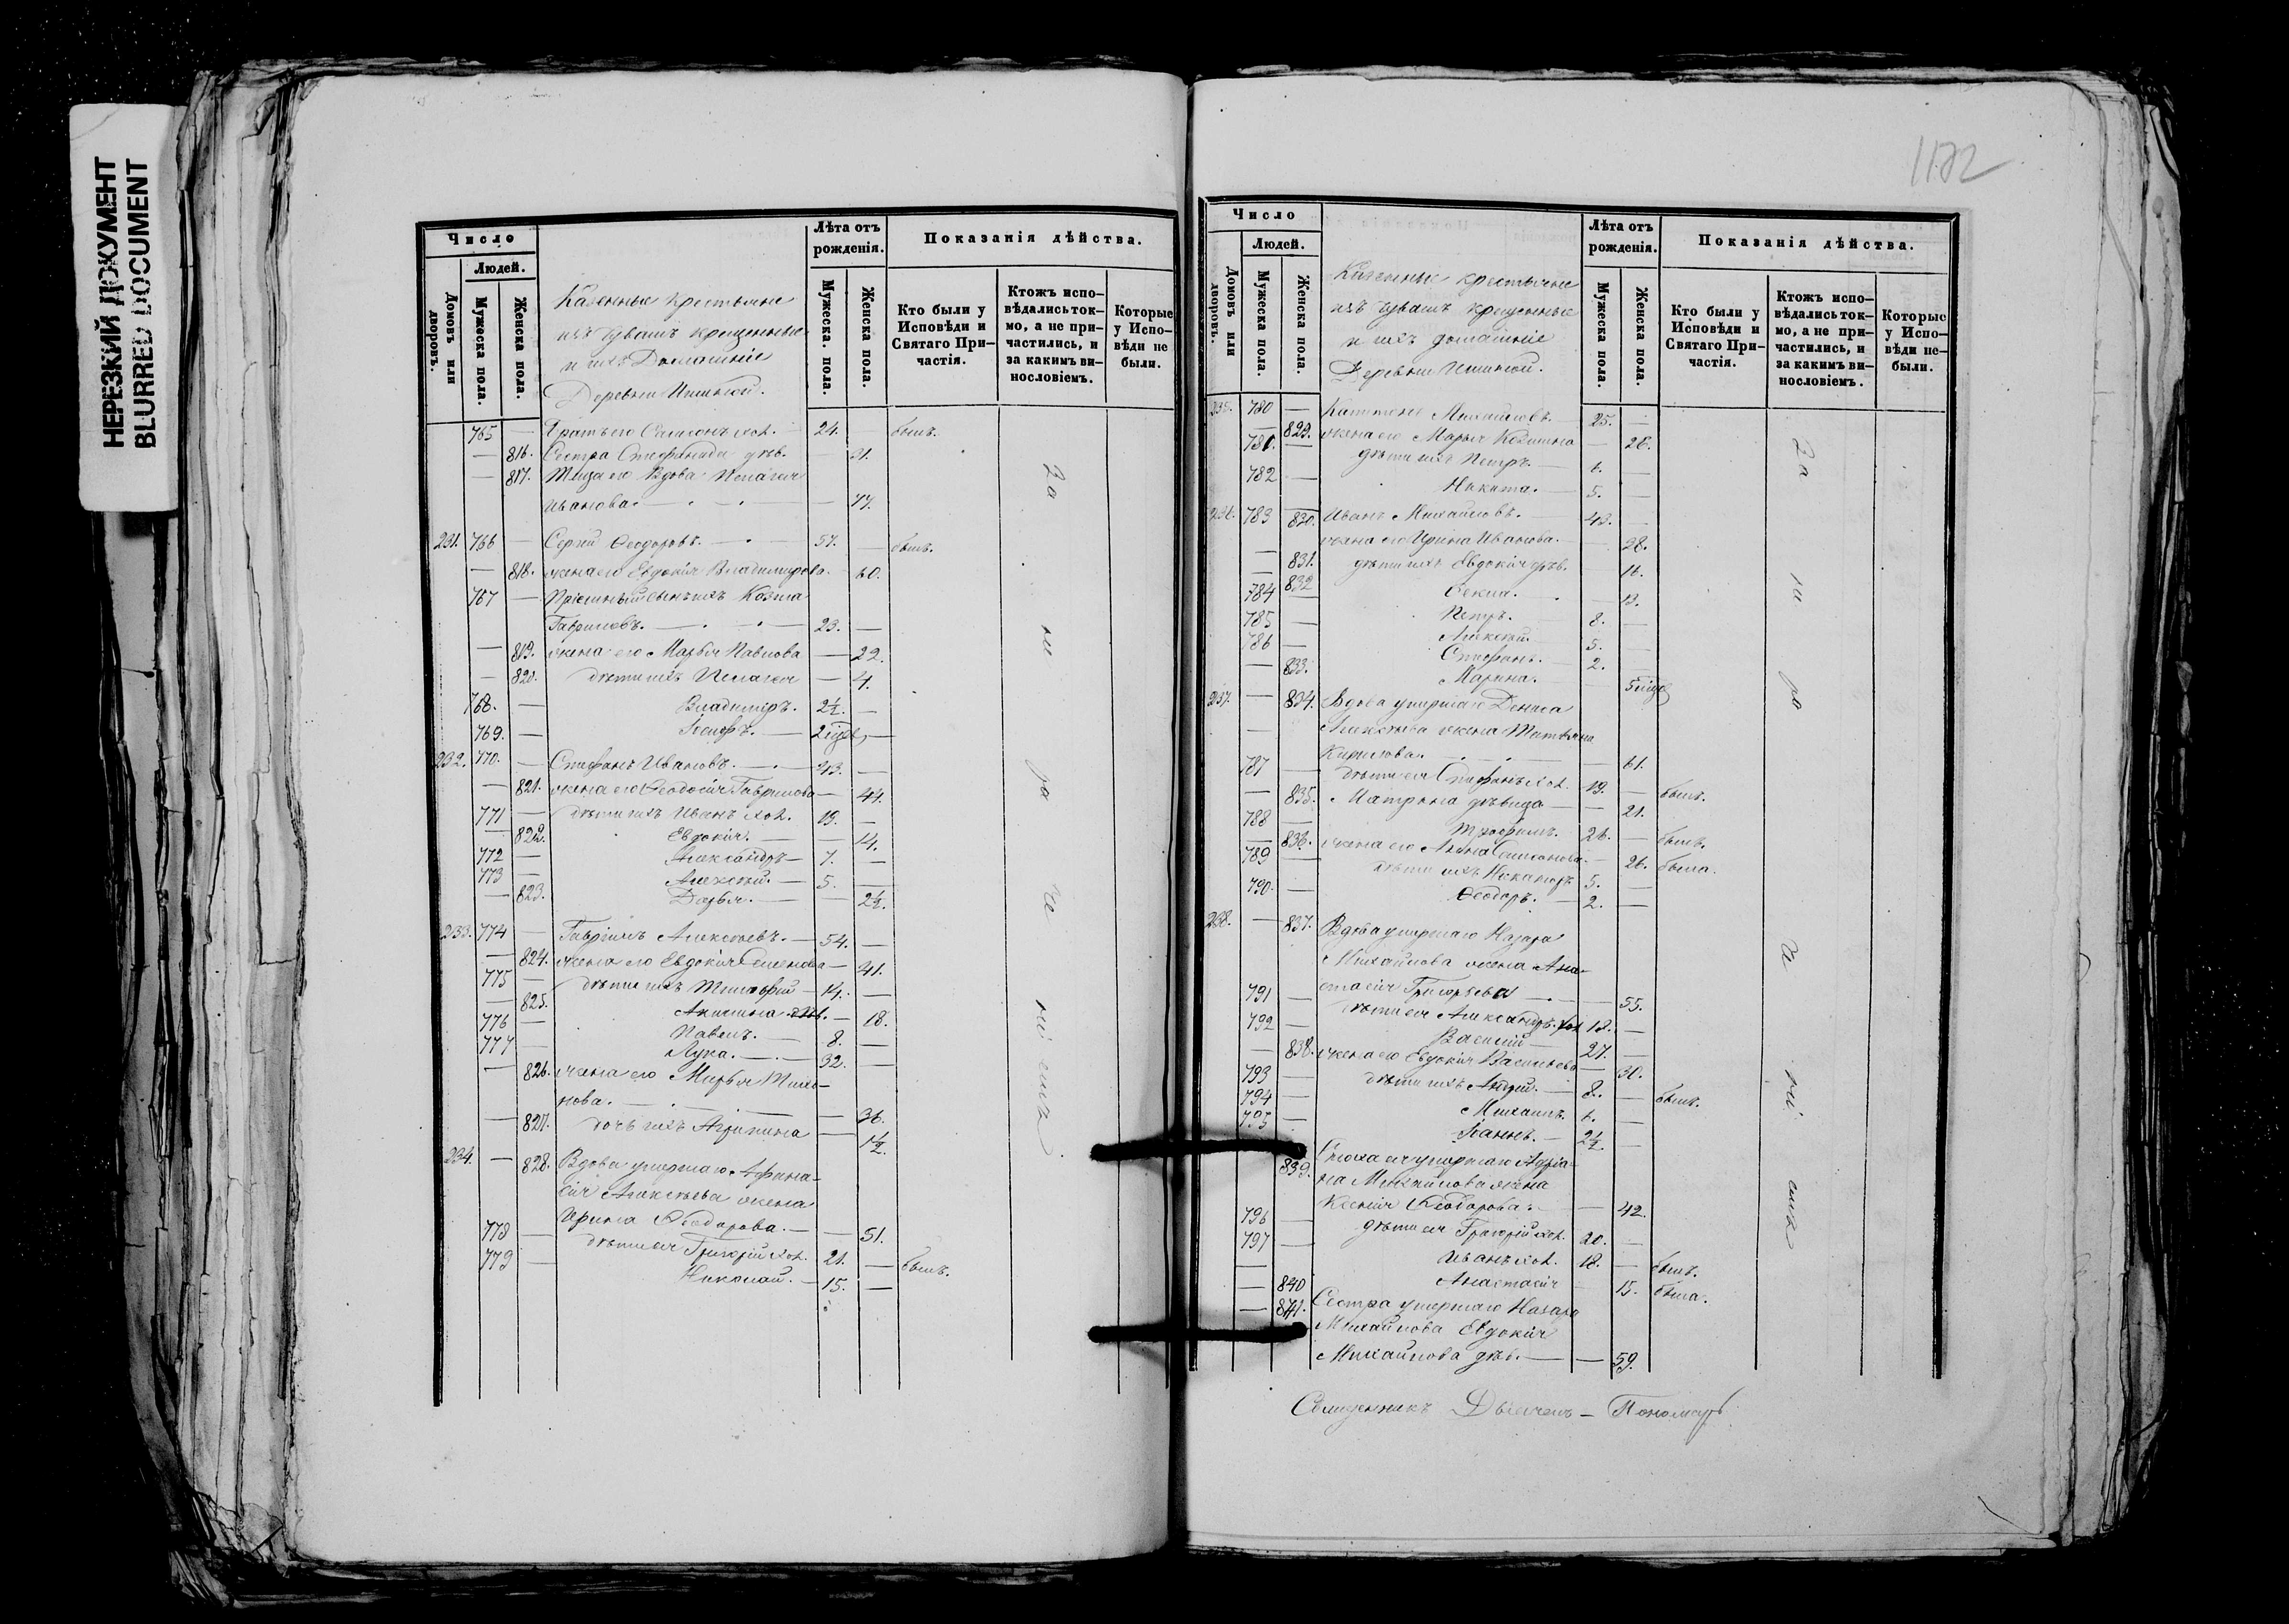 НЕРЕЗКИЙ ДОКУМЕНТ
BLURRED DOCUMENT
Число
Людей.
Домовъ или дворовъ.
Мужеска пола.
Женска пола.
Казенные крестьяне
изъ чувашъ крещенные
и ихъ Домашніе
Деревни
Лѣта отъ рожденія.
Мужеска. пола.
Женска пола.
Показанія дѣйства.
Кто были у Исповѣди и Святаго Причастія.
Ктожъ исповѣдались токмо, а не причастились, и за какимъ винословіемъ.
Которые у Исповѣди не были.
765 — Братъ его Самсонъ хол. — 24. — былъ.
— 816. Сестра Степанида дѣв. — 31.
— 817. Теща его Вдова Пелагея
Иванова. — 77.
231. 766 — Сергій Ѳеодоровъ. — 57. — былъ.
— 818. жена его Евдокія Владимирова — 60.
767 — Пріемный сынъ ихъ Козма
Гавриловъ. — 23. —
— 819. жена его Марья Павлова — 22.
— 820. дѣти ихъ Пелагея — 4.
768. — Владиміръ. 2½. —
769. — Іосифъ. — —
232. 770. — Стефанъ Ивановъ. — 43. —
— 821. жена его Ѳеодосія Гаврилова — 44.
771 — дѣти ихъ Иванъ хол. 19. —
— 822. Евдокія. — 14.
772 — Александръ — 7. —
773 — Алексѣй. — 5. —
— 823. Дарья. — 2½.
233. 774 — Гавріилъ Алексѣевъ. — 54. —
— 824. жена его Евдокія Семенова — 41.
775 — дѣти ихъ Тимоѳей — 14. —
— 825. Акилина — 18.
776 — Павелъ. — 8. —
777 — Лука. — 32. —
— 826. жена его Марья
нова. — 36.
— 827. дочь ихъ Агрипина — 1½.
234. — 828. Вдова умершаго Афана-
сія Алексѣева жена
Ирина Ѳеодорова. — 51.
778 — дѣти ея Григорій хол. 21. — былъ.
779 — Николай. — 15. —
1172
Число
Людей.
Домовъ или дворовъ.
Мужеска пола.
Женска пола.
Казенные крестьяне
изъ чувашъ крещенные
и ихъ домашніе
Деревни
Лѣта отъ рожденія.
Мужеска пола.
Женска пола.
Показанія дѣйства.
Кто были у Исповѣди и Святаго Причастія.
Ктожъ исповѣдались токмо, а не причастились, и за какимъ винословіемъ.
Которые у Исповѣди не были.
235. 780 — Капитонъ Михайловъ. 25. —
— 829. жена его Марья Козмина — 28.
781. — дѣти ихъ Петръ. — —
782 — Никита. — 5. —
236. 783 — Иванъ Михайловъ. — 43. —
830. жена его Ирина Иванова. — 38.
— 831. дѣти ихъ Евдокія дѣв. — 16.
— 832 Ѳекла. — 13.
784 — Петръ. — 8. —
785 — Алексѣй. 5. —
786 — Стефанъ. — 2. —
— 833. Марина.
237. — 834. Вдова умершаго Дениса
Алексѣева жена Татьяна
Кирилова. — 61.
787 — дѣти ея Стефанъ хол. 19. — былъ.
— 835. Матрона дѣвица — 21.
788 — Трофимъ. 26. — былъ.
— 836. жена его Анна — 26. была.
789 — дѣти ихъ Никаноръ 5. —
790. — Ѳеодоръ. — 2. —
238. — 837. Вдова умершаго Назара
Михайлова жена Ана-
стасія Григорьева — 55.
791 — дѣти ея Александръ хол 18. —
792 — Василій — 27. —
— 838. жена его Евдокія Васильева — 30.
793 — дѣти ихъ Андрей. — 8. — былъ.
794 — Михаилъ. —
795 — — 2½. —
839. Сноха ея умершаго Адріа-
на Михайлова жена
Ксенія Ѳеодорова. — 42.
796 — дѣти ея Григорій хол. 20. —
797 — Иванъ хол. 18. — былъ.
— 840 Анастасія 15. была.
— 841. Сестра умершаго Назара
Михайлова Евдокія
Михайлова дѣв. — 59.
Священникъ Дьячекъ — Пономарь